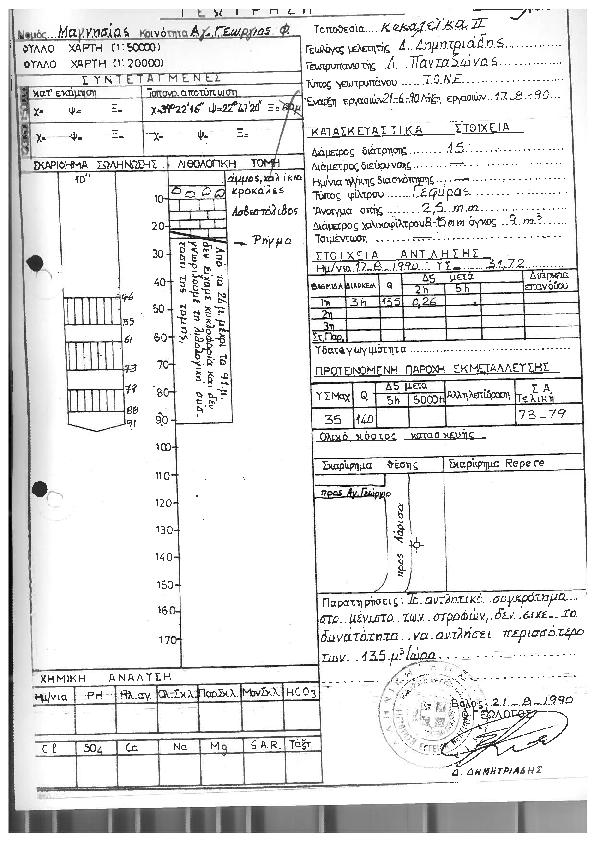 ΓΕΩΤΡΗΣΗ
Νομός Μαγνησίας Κοινότητα Αγ. Γεώργιος Φ.
ΦΥΛΛΟ ΧΑΡΤΗ (1:50000)
ΦΥΛΛΟ ΧΑΡΤΗ (1:20000)
ΣΥΝΤΕΤΑΓΜΕΝΕΣ
κατ' εκτίμηση Τοπογρ. αποτύπωση
χ= ψ= Ξ= χ=39°22'16" ψ=22°47'20" Ξ=
χ= ψ= Ξ= χ: ψ= Ξ=
ΣΚΑΡΙΦΗΜΑ ΣΩΛΗΝΩΣΗΣ ΛΙΘΟΛΟΓΙΚΗ ΤΟΜΗ
10"
άμμος, χαλίκια
κροκάλες
Ασβεστόλιθος
Ρήγμα
10
20
30
40
50
60
70
80
90
100
110
120
130
140
150
160
170
46
55
61
73
79
88
91
Από τα 24μ. μέχρι τα 91μ.
δεν είχαμε κυκλοφορία και δεν
γνωρίζουμε τη λιθολογική σύσ-
ταση της τομής.
ΧΗΜΙΚΗ ΑΝΑΛΥΣΗ
Ημ/νια PH Ηλ.αγ. Ολ.Σκλ. Παρ.Σκλ. Μον.Σκλ. HCO3
Cl SO4 Ca Na Mg S.A.R. Τάξη
Τοποθεσία Κακαλέικα II
Γεωλόγος μελετητής Δ. Δημητριάδης
Γεωτρυπανιστής Λ. Πανταζώνας
Τύπος γεωτρυπάνου Τ.Ο.Ν.Ε.
Έναρξη εργασιών 21-6-90 Λήξη εργασιών 17-8-90
ΚΑΤΑΣΚΕΥΑΣΤΙΚΑ ΣΤΟΙΧΕΙΑ
Διάμετρος διάτρησης 15
Διάμετρος διεύρυνσης —
Ημ/νια ηλ/κης διασκόπησης —
Τύπος φίλτρου Γέφυρας
Άνοιγμα οπής 2,5 m.m
Διάμετρος χαλικοφίλτρου 8-15mm όγκος 9 m³
Τσιμέντωση —
ΣΤΟΙΧΕΙΑ ΑΝΤΛΗΣΗΣ
Ημ/νια 17-8-1990 ΥΣ 31,72
ΒΑΘΜΙΔΑ ΔΙΑΡΚΕΙΑ Q ΔS μετά Διάρκεια επανόδου
2h 5h
1η 3h 135 0,26
2η
3η
Στ. Παρ.
Υδαταγωγιμότητα
ΠΡΟΤΕΙΝΟΜΕΝΗ ΠΑΡΟΧΗ ΕΚΜΕΤΑΛΛΕΥΣΗΣ
ΥΣ Μαχ Q ΔS μετά Αλληλεπίδραση Σ.Α Τελική
5h 5000h
35 140 73-79
Ολικό κόστος κατασκευής
Σκαρίφημα θέσης Σκαρίφημα Repere
προς Αγ. Γεώργιο
προς Λάρισα
Παρατηρήσεις: Το αντλητικό συγκρότημα
στο μέγιστο των στροφών, δεν είχε τη
δυνατότητα να αντλήσει περισσότερο
των 135 μ³/ώρα.
Βόλος: 21-8-1990
Ο ΓΕΩΛΟΓΟΣ
Δ. ΔΗΜΗΤΡΙΑΔΗΣ